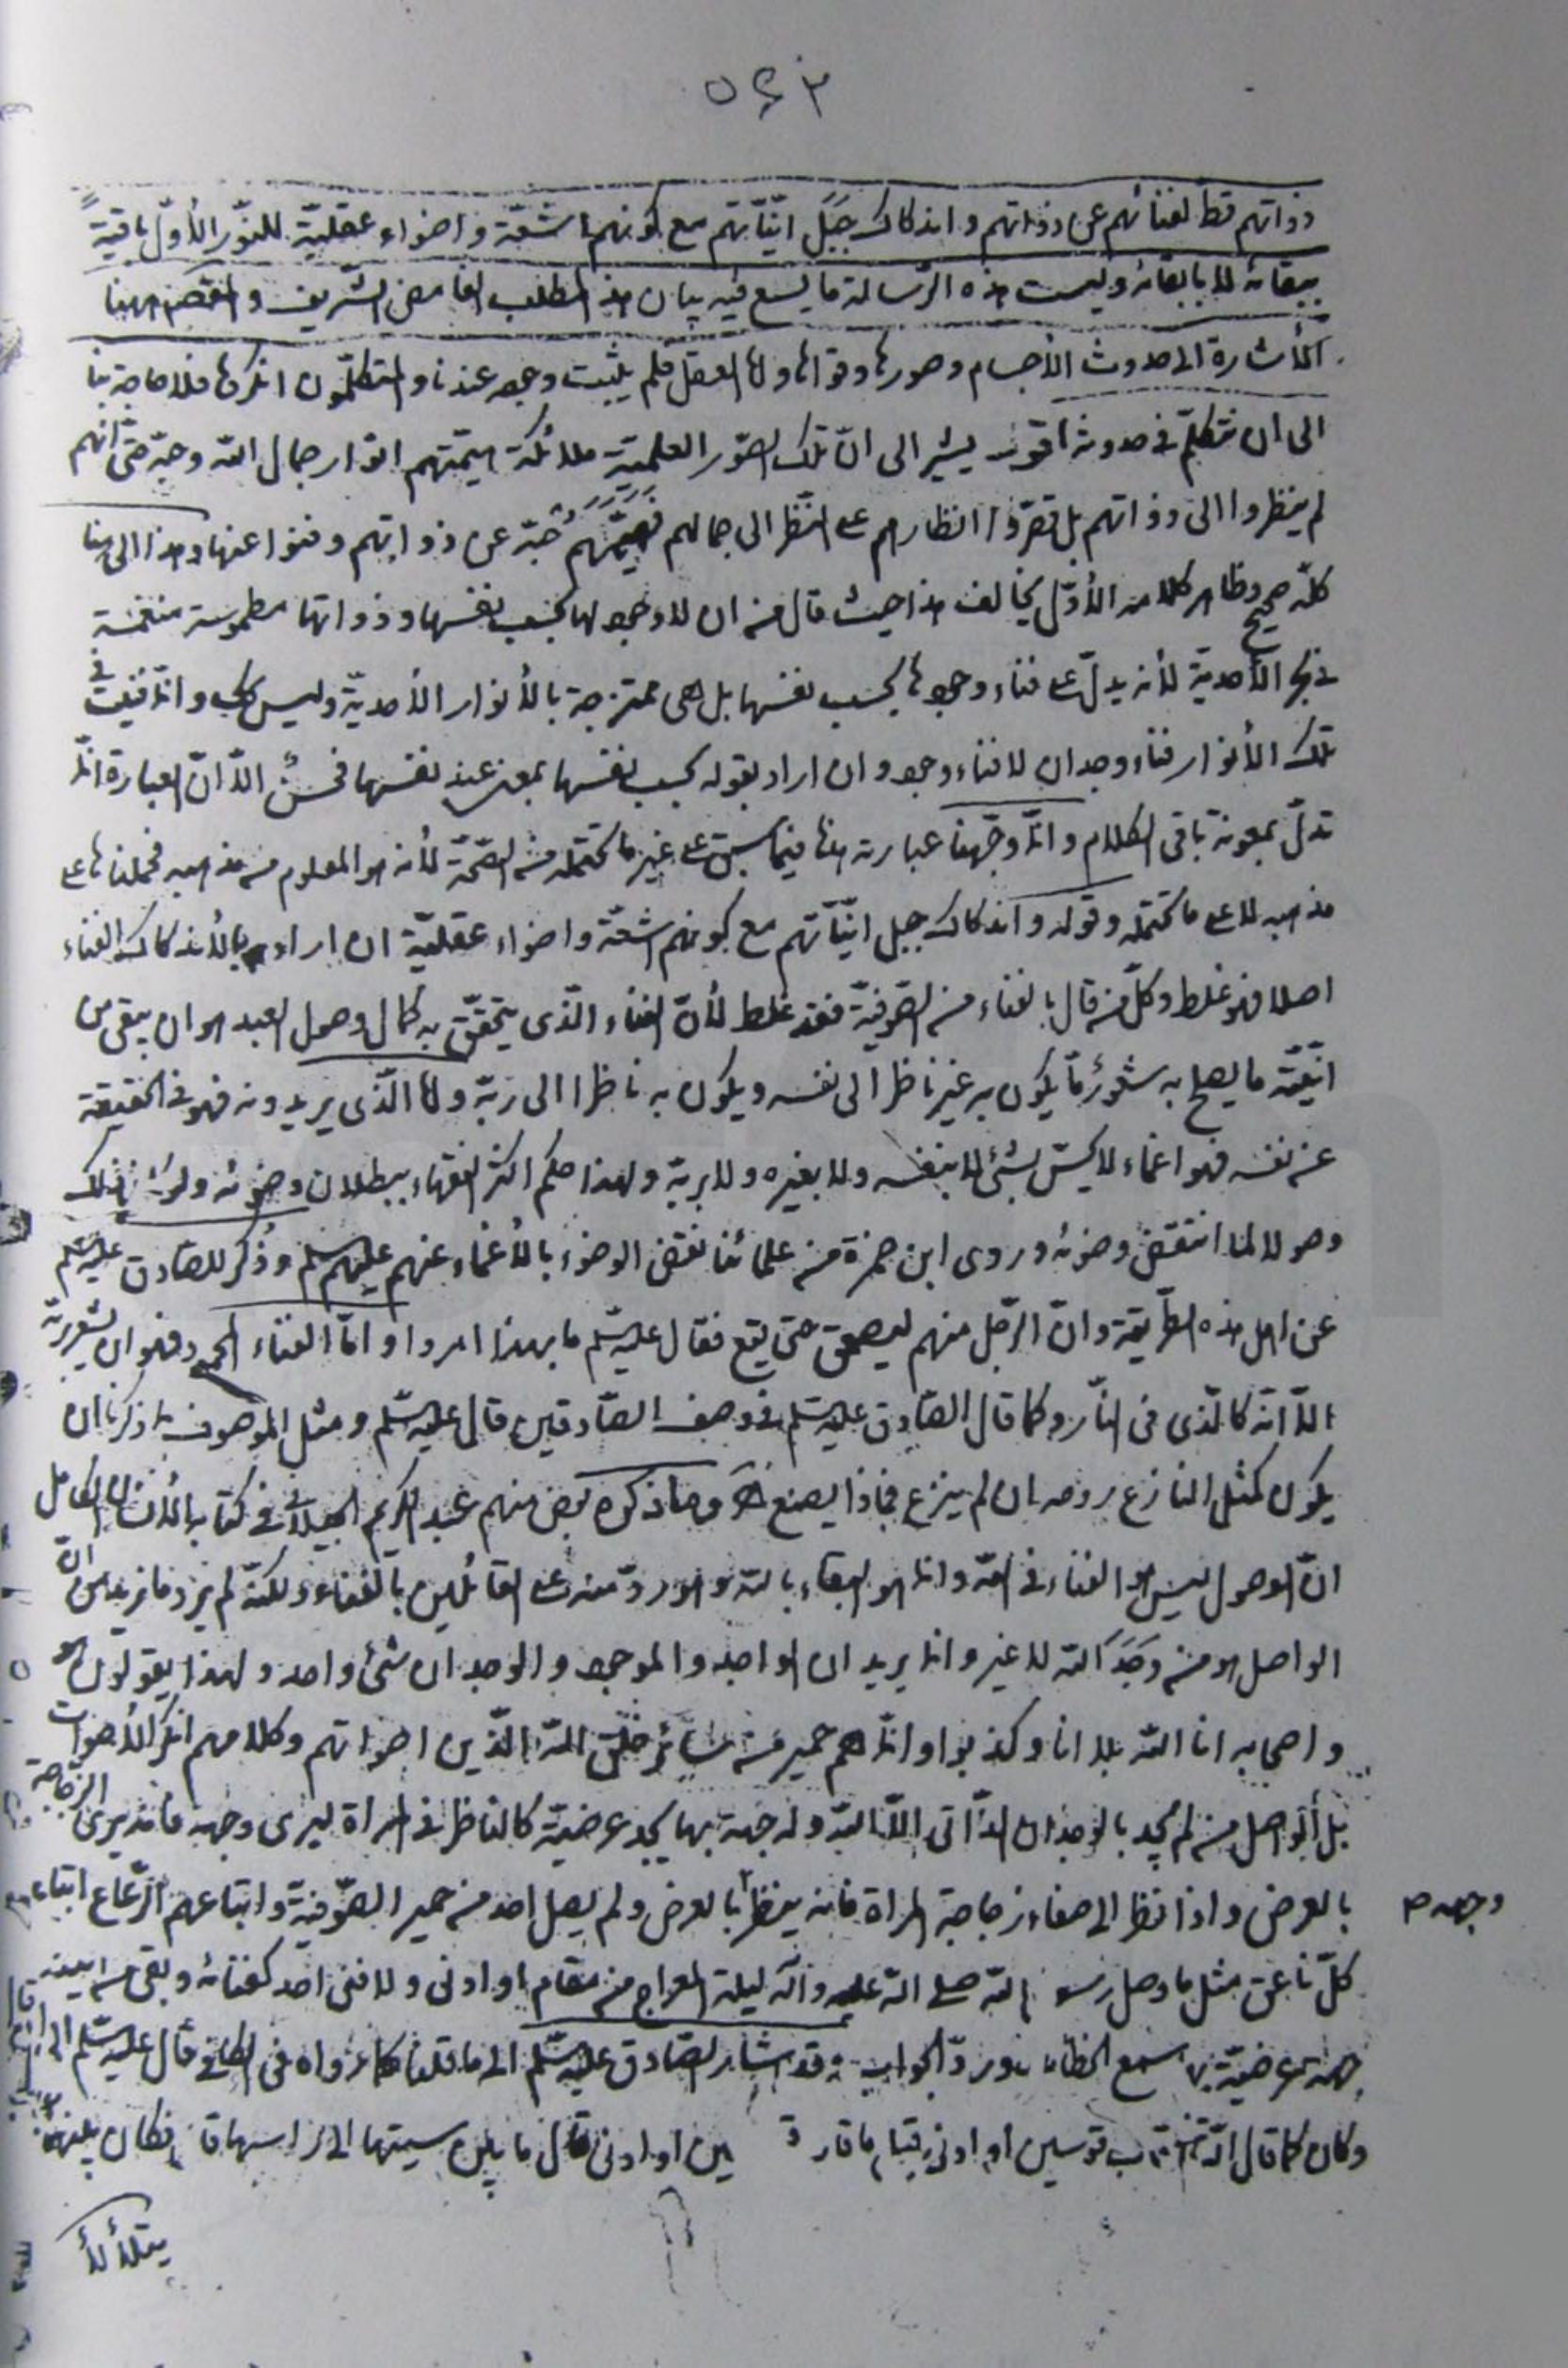 ذواتهم قط لفنائهم عن ذواتهم و اندكاك جَبَل انّيّاتهم مع كونهم اشعّة و اضواء عقليّة للنّور الأوّل باقيةً
ببقائه لا بابقائه وليست هذه الرّسالة ما يسع فيه بيان هذا المطلب الغامض الشّريف و المقصود ههنا
الأشارة الى حدوث الأجسام وصورها وقواها واما العقل فلم يثبت وجوده عندنا و المتكلّمون انكروها فلا حاجة بنا
الى ان نتكلّم فى حدوثه اقول يشير الى انّ تلك الصّور العلميّة ملائكة هيّمتهم انوار جمال اللّه وحبّه حتّى انّهم
لم ينظروا الى ذواتهم بل قصّروا انظارهم على النّظر الى جماله فهيّمهم حُبّه عن ذواتهم وفنوا عنها وهذا الى هنا
كلّه صحيح وظاهر كلامه الأوّل يخالف هذا حيث قال من ان لا وجود لها بحسب نفسها و ذواتها مطموسة منغمسة
فى بحر الأحديّة لأنه يدلّ على فناء وجودها بحسب نفسها بل هى ممتزجة بالأنوار الأحديّة وليس كك وانّما فنيت فى
تلك الأنوار فناء وجدان لا فناء وجود و ان اراد بقوله بحسب نفسها بمعنى عند نفسها فحسنٌ الّا انّ العبارة انّما
تدلّ بمعونة باقى الكلام و انّما وجّهنا عبارته هنا فيما سبق على غير ما تحتمله من الصّحّة لأنه هو المعلوم من مذهبه فحملناها على
مذهبه لا على ما تحتمله وقوله و اندكاك جبل انّيّاتهم مع كونهم اشعّة و اضواء عقليّة ان اراد بالأندكاك الفناء
اصلا فهو غلط وكلّ من قال بالفناء من الصّوفيّة فقد غلط لأنّ الفناء الّذى يتحقّق به كمال وصول العبد هو ان يبقى من
انّيّته ما يصلح به شعورٌ مّا يكون به غير ناظر الى نفسه ويكون به ناظرا الى ربّه واما الّذى يريدونه فهو فى الحقيقة
عن نفسه فهو اغماء لا يحسّ بشئ لا بنفسه ولا بغيره ولا بربّه ولهذا حكم اكثر الفقهاء ببطلان وضوئه ولو كان ذلك
وصولا لما انتقض وضوئه وروى ابن حمزة من علمائنا نقض الوضوء بالأغماء عنهم عليهم السلام وذُكر للصّادق عليه السّلم
عن اهل هذه الطّريقة و انّ الرّجل منهم ليصعق حتى يقع فقال عليه السّلم ما بهذا امروا و امّا الفناء المحمود فهو ان يشعر بربّه
الّا انّه كالّذى فى النّار وكما قال الصّادق عليه السّلم فى وصف الصّادقين قال عليه السّلم و مثل الموصوف بما ذكرنا ان
يكون كمثل النازع روحه ان لم ينزع فماذا يصنع و ما ذكره بعض منهم عبد الكريم الجيلانى فى كتابه الأنسان الكامل
انّ الوصول ليس هو الفناء فى اللّه و انما هو البقاء باللّه وهو ردّ منه على القائلين بالفناء ولكنّه لم يرد ما نريد من انّ
الواصل هو من وَجَدَ اللّه لا غير و انما يريد ان الواجد و الموجود و الوجدان شئ واحد ولهذا يقولون هو
و اصحابه انا اللّه بلا انا وكذبوا و انّما هم حمير من سائر خلق اللّه الّذين اصواتهم وكلامهم انكر الأصوات
بل الواصل من لم يجد بالوجدان الذّاتى الّا اللّه وله جهة بها يجد عرضيّة كالناظر فى المراة ليرى وجهه فانه يرى الزّجاجة
بالعرض و اذا نظر الى صفاء زجاجة المراة فانه ينظر بالعرض ولم يصل احد من حمير الصّوفيّة و اتباعهم الرّعاع اتباع
وجهه م
كلّ ناعق مثل ما وصل رسول اللّه صلى اللّه عليه وآله ليلة المعراج من مقام او ادنى ولا فنى احد كفنائه وبقى من
جهة عرضيّة بها سمع الخطاب و ردّ الجواب وقد اشار الصّادق عليه السّلم الى ما قلنا كما رواه فى الكافى قال عليه السّلم
وكان كما قال اللّه قاب قوسين او ادنى قيل ما قاب قوسين او ادنى قال ما بين سيتها الى راسها قال فكان بينهما
يتلألأ